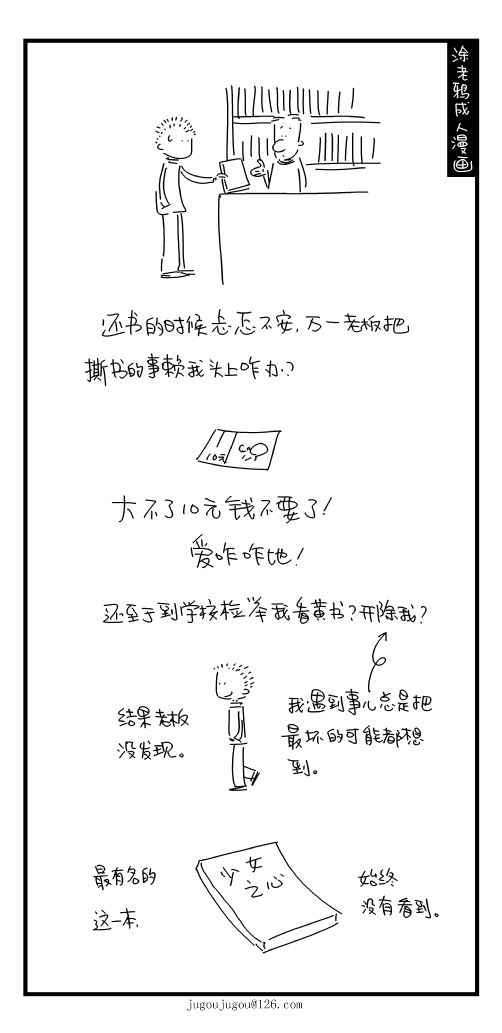 涂老鸦成人漫画
还书的时候忐忑不安,万一老板把
撕书的事赖我头上咋办?
10元
大不了10元钱不要了!
爱咋咋地!
还至于到学校检举我看黄书?开除我?
结果老板
没发现。
我遇到事儿总是把
最坏的可能都想
到。
最有名的
这一本,
少女
之心
始终
没有看到。
jugoujugou@126.com